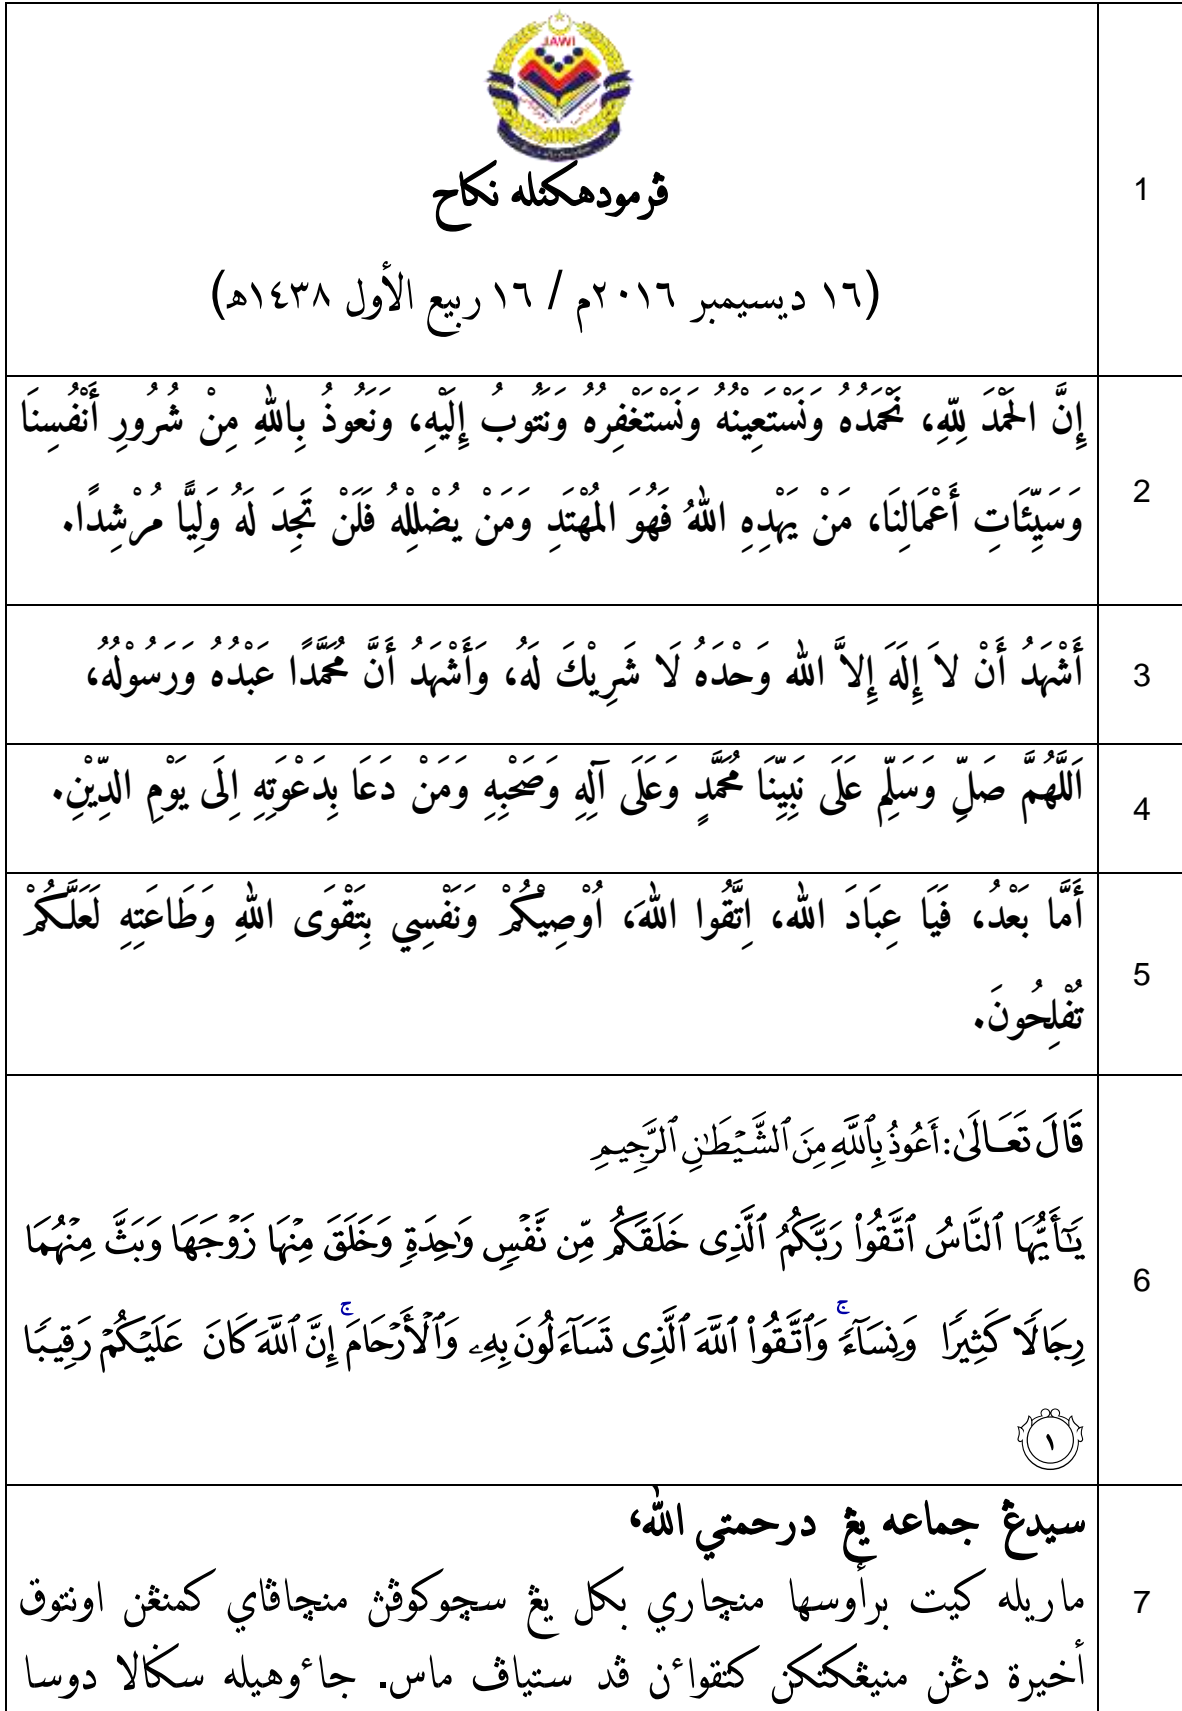 JAWI
ڤرمودهكنله نكاح
1
(١٦ ديسيمبر ٢٠١٦م / ١٦ ربيع الأول ١٤٣٨هـ)
إِنَّ الحَمْدَ لِلّهِ، نَحْمَدُهُ وَنَسْتَعِيْنُهُ وَنَسْتَغْفِرُهُ وَنَتُوبُ إِلَيْهِ، وَنَعُوذُ بِاللهِ مِنْ شُرُورِ أَنْفُسِنَا
2
وَسَيِّئَاتِ أَعْمَالِنَا، مَنْ يَهْدِهِ اللهُ فَهُوَ المُهْتَدِ وَمَنْ يُضْلِلْهُ فَلَنْ تَجِدَ لَهُ وَلِيًّا مُرْشِدًا.
أَشْهَدُ أَنْ لاَ إِلَهَ إِلاَّ الله وَحْدَهُ لَا شَرِيْكَ لَهُ، وَأَشْهَدُ أَنَّ مُحَمَّدًا عَبْدُهُ وَرَسُوْلُهُ،
3
اَللَّهُمَّ صَلِّ وَسَلِّم عَلَى نَبِيِّنَا مُحَمَّدٍ وَعَلَى آلِهِ وَصَحْبِهِ وَمَنْ دَعَا بِدَعْوَتِهِ اِلَى يَوْمِ الدِّيْنِ.
4
أَمَّا بَعْدُ، فَيَا عِبَادَ الله، اِتَّقُوا اللهَ، اُوْصِيْكُمْ وَنَفْسِي بِتَقْوَى اللهِ وَطَاعَتِهِ لَعَلَّكُمْ
5
تُفْلِحُونَ.
قَالَ تَعَالَىٰ: أَعُوذُ بِٱللَّهِ مِنَ ٱلشَّيْطَٰنِ ٱلرَّجِيمِ
يَٰٓأَيُّهَا ٱلنَّاسُ ٱتَّقُوا۟ رَبَّكُمُ ٱلَّذِى خَلَقَكُم مِّن نَّفْسٍ وَٰحِدَةٍ وَخَلَقَ مِنْهَا زَوْجَهَا وَبَثَّ مِنْهُمَا
6
رِجَالًا كَثِيرًا وَنِسَآءً ۚ وَٱتَّقُوا۟ ٱللَّهَ ٱلَّذِى تَسَآءَلُونَ بِهِۦ وَٱلْأَرْحَامَ ۚ إِنَّ ٱللَّهَ كَانَ عَلَيْكُمْ رَقِيبًا
١
سيدڠ جماعه يڠ درحمتي الله،
ماريله كيت برأوسها منچاري بكل يڠ سچوكوڤڽ منچاڤاي كمنڠن اونتوق
7
أخيرة دڠن منيڠكتكن كتقواءن ڤد ستياڤ ماس. جاءوهيله سݢالا دوسا